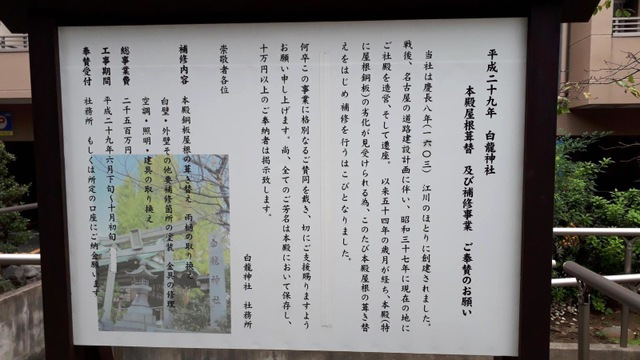 平成二十九年　白龍神社
本殿屋根葺替　及び補修事業　ご奉賛のお願い
当社は慶長八年(一六〇三)　江川のほとりに創建されました。
戦後、名古屋の道路建設計画に伴い、昭和三十七年に現在の地に
ご社殿を造営、そして遷座。以来五十四年の歳月が経ち、本殿(特
に屋根銅板)の劣化が見受けられる為、このたび本殿屋根の葺き替
えをはじめ補修を行うはこびとなりました。
何卒この事業に格別なるご賛同を戴き、切にご支援賜りますよう
お願い申し上げます。尚、全てのご芳名は本殿において保存し、
十万円以上のご奉納者は掲示致します。
白龍神社　社務所
崇敬者各位
補修内容　本殿銅板屋根の葺き替え　雨樋の取り換え
白壁・外壁その他要補修箇所の塗装　金具の修理
空調・照明・建具の取り換え
総事業費　二千五百万円
工事期間　平成二十九年六月下旬〜十月初旬
奉賛受付　社務所　もしくは所定の口座にご納金願います
白龍神社